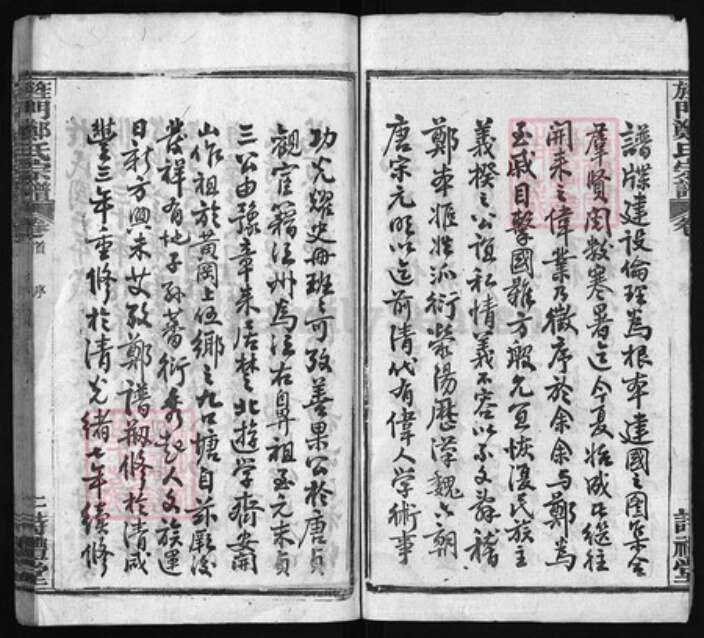 譜牒建設倫理為根本建國之圖集合
羣賢閱數寒暑迄今夏始成此繼往
開來之偉業乃徵序於余余與鄭為
玉戚目擊國難方殷允宜恢復民族主
義揆之公誼私情義不容以不文辭稽
鄭本姬姓派衍滎陽歷漢魏六朝
唐宋元明以迄前清代有偉人學術事
功光耀史冊班班可攷善果公於唐貞
觀官籍江州為江右鼻祖至元末貞
三公由豫章來居楚之北遊學齊安開
山作祖於黃岡上伍鄉之九口塘自茲厥後
發祥有地子孫蕃衍秀起人文族運
日新方興未艾攷鄭譜剏修於清咸
豐三年重修於清光緒七年續修
旌門鄭氏宗譜
卷首
序
二
詩禮堂
旌門鄭氏宗譜
卷
詩禮堂